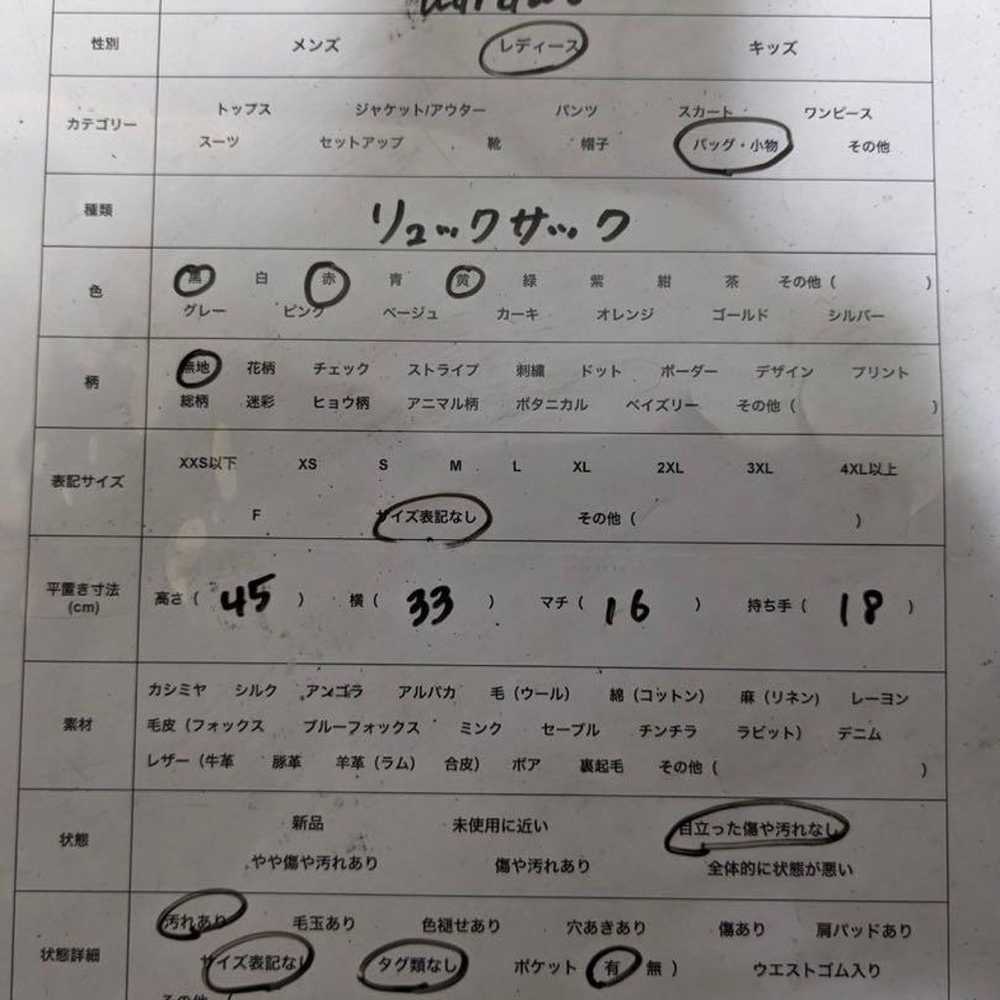 性別 メンズ レディース キッズ
カテゴリー
トップス ジャケット/アウター パンツ スカート ワンピース
スーツ セットアップ 靴 帽子 バッグ・小物 その他
種類 リュックサック
色
黒 白 赤 青 黄 緑 紫 紺 茶 その他（ ）
グレー ピンク ベージュ カーキ オレンジ ゴールド シルバー
柄
無地 花柄 チェック ストライプ 刺繍 ドット ボーダー デザイン プリント
総柄 迷彩 ヒョウ柄 アニマル柄 ボタニカル ペイズリー その他（ ）
表記サイズ
XXS以下 XS S M L XL 2XL 3XL 4XL以上
F サイズ表記なし その他（ ）
平置き寸法
(cm)
高さ（ 45 ） 横（ 33 ） マチ（ 16 ） 持ち手（ 18 ）
素材
カシミヤ シルク アンゴラ アルパカ 毛（ウール） 綿（コットン） 麻（リネン） レーヨン
毛皮（フォックス ブルーフォックス ミンク セーブル チンチラ ラビット） デニム
レザー（牛革 豚革 羊革（ラム） 合皮） ボア 裏起毛 その他（ ）
状態
新品 未使用に近い 目立った傷や汚れなし
やや傷や汚れあり 傷や汚れあり 全体的に状態が悪い
状態詳細
汚れあり 毛玉あり 色褪せあり 穴あきあり 傷あり 肩パッドあり
サイズ表記なし タグ類なし ポケット（有 無 ） ウエストゴム入り
その他（